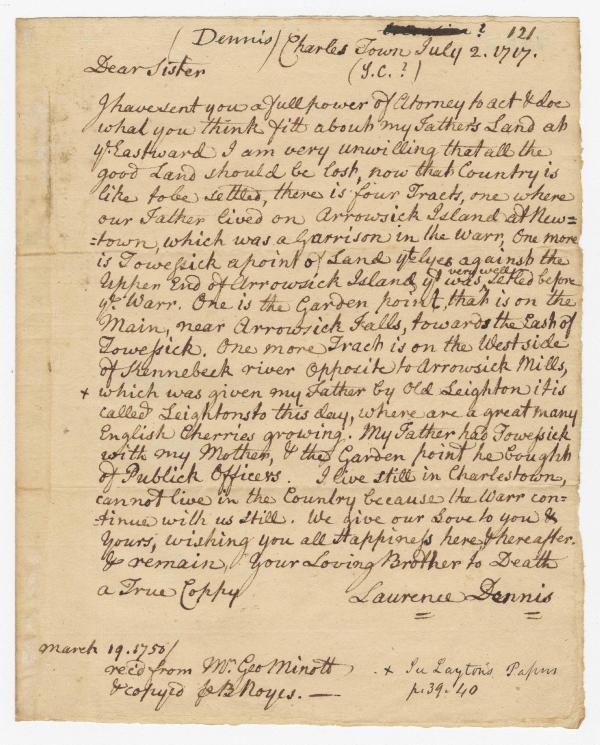 ? 121
(Dennis) Charles Town July 2. 1717.
Dear Sister (S.C.?)
I have sent you a full power of Atorney to act & doe
what you think fitt about my Fathers Land at
ye. Eastward I am very unwilling that all the
good Land should be lost, now that Country is
like to be settled, there is four Tracts, one where
our Father lived on Arrowsick Island at New=
=town, which was a Garrison in the Warr, One more
is Towessick a point of Land yt. lyes against the
Upper End of Arrowsick Island, yt. was very well settled before
ye. Warr. One is the Garden point, that is on the
Main, near Arrowsick Falls, towards the East of
Towessick. One more Tract is on the West side
of Kennebeck river Opposite to Arrowsick Mills,
+ which was given my Father by Old Leighton it is
called Leightons to this day, where are a great many
English Cherries growing. My Father had Towessick
with my Mother, & the Garden point he bought
of Publick Officers. I live still in Charlestown,
cannot live in the Country because the Warr con=
=tinue with us still. We give our Love to you &
Yours, wishing you all Happiness here & hereafter.
& remain, Your Loving Brother to Death
a True Coppy Laurence Dennis
March 19. 1750/
rec'd from Mr. Geo Minott + In Layton's Papers
& copy'd J B Noyes. — p. 39. 40